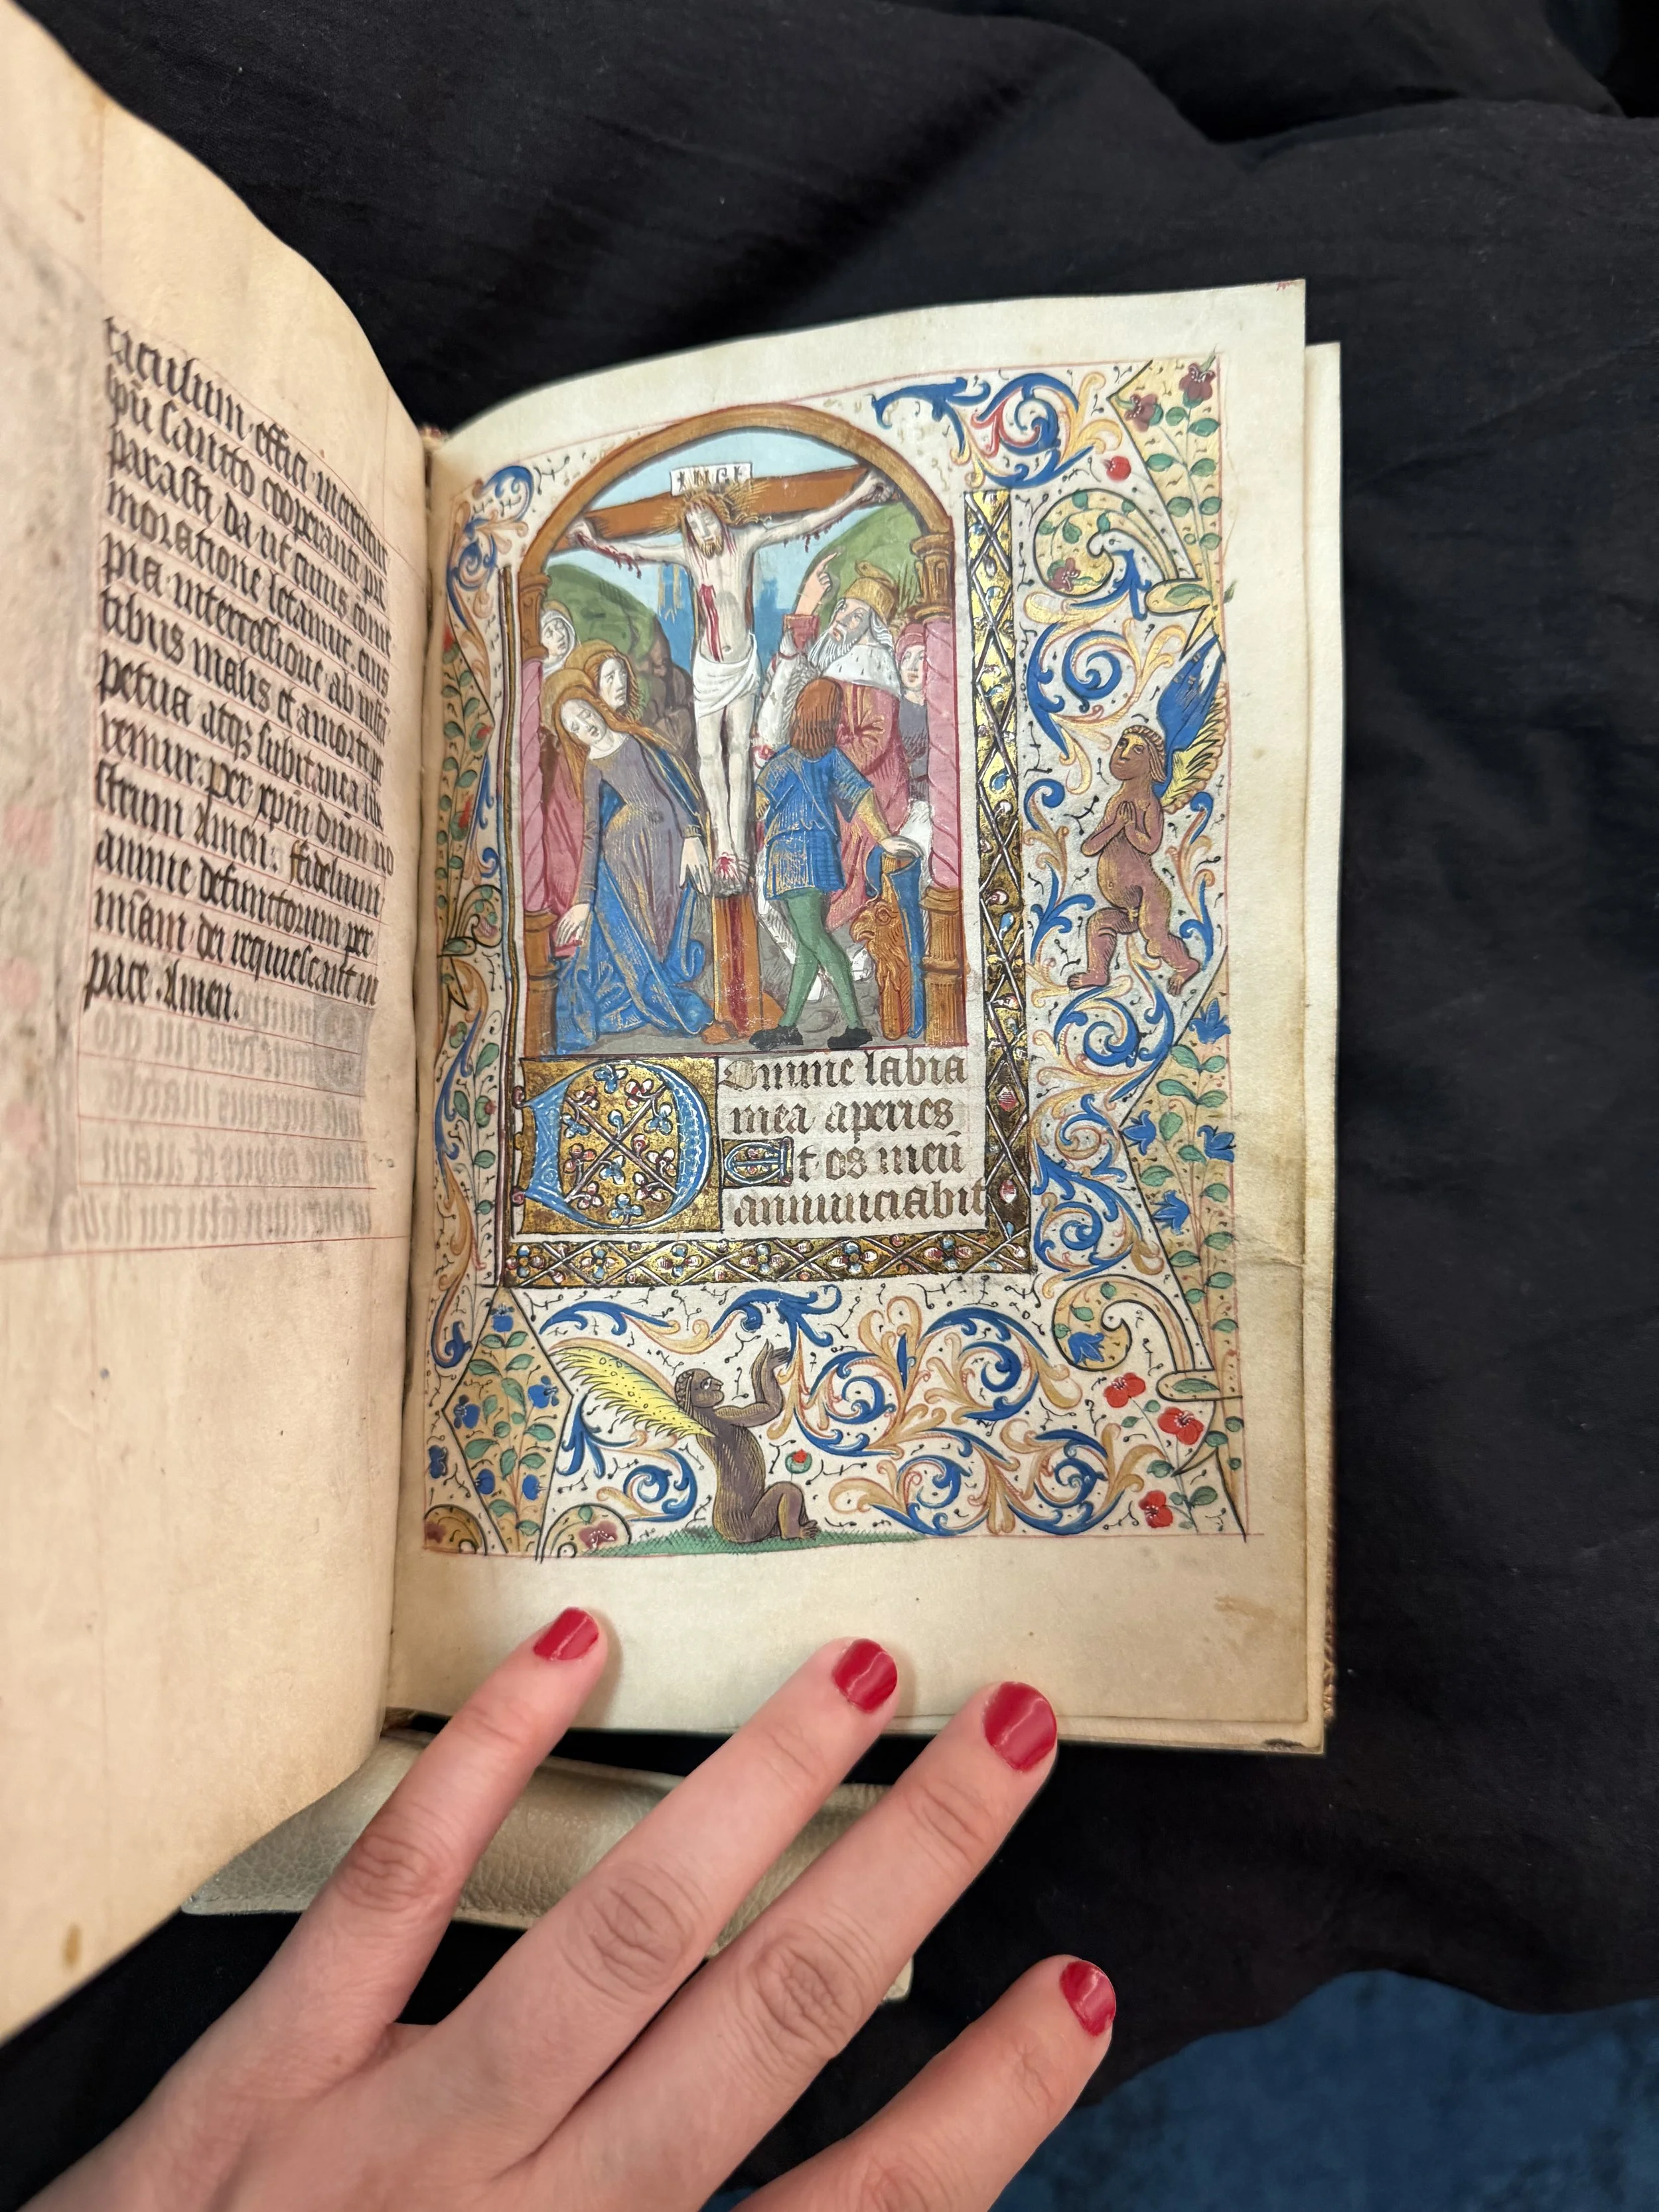 taculum effici mereretur
spū sancto cooperante pre
parasti da ut cuius cōme
moratione letamur eius
pia intercessione ab insta
tibus malis et a morte per
petua atqꝫ subitanea libe
remur. Per xpm̄ dnm̄ no
strum Amen. ffidelium
anime defunctorum per
mīam dei requiescant in
pace. Amen.
INRI
Domine labia
mea aperies
Et os meū
annunciabit